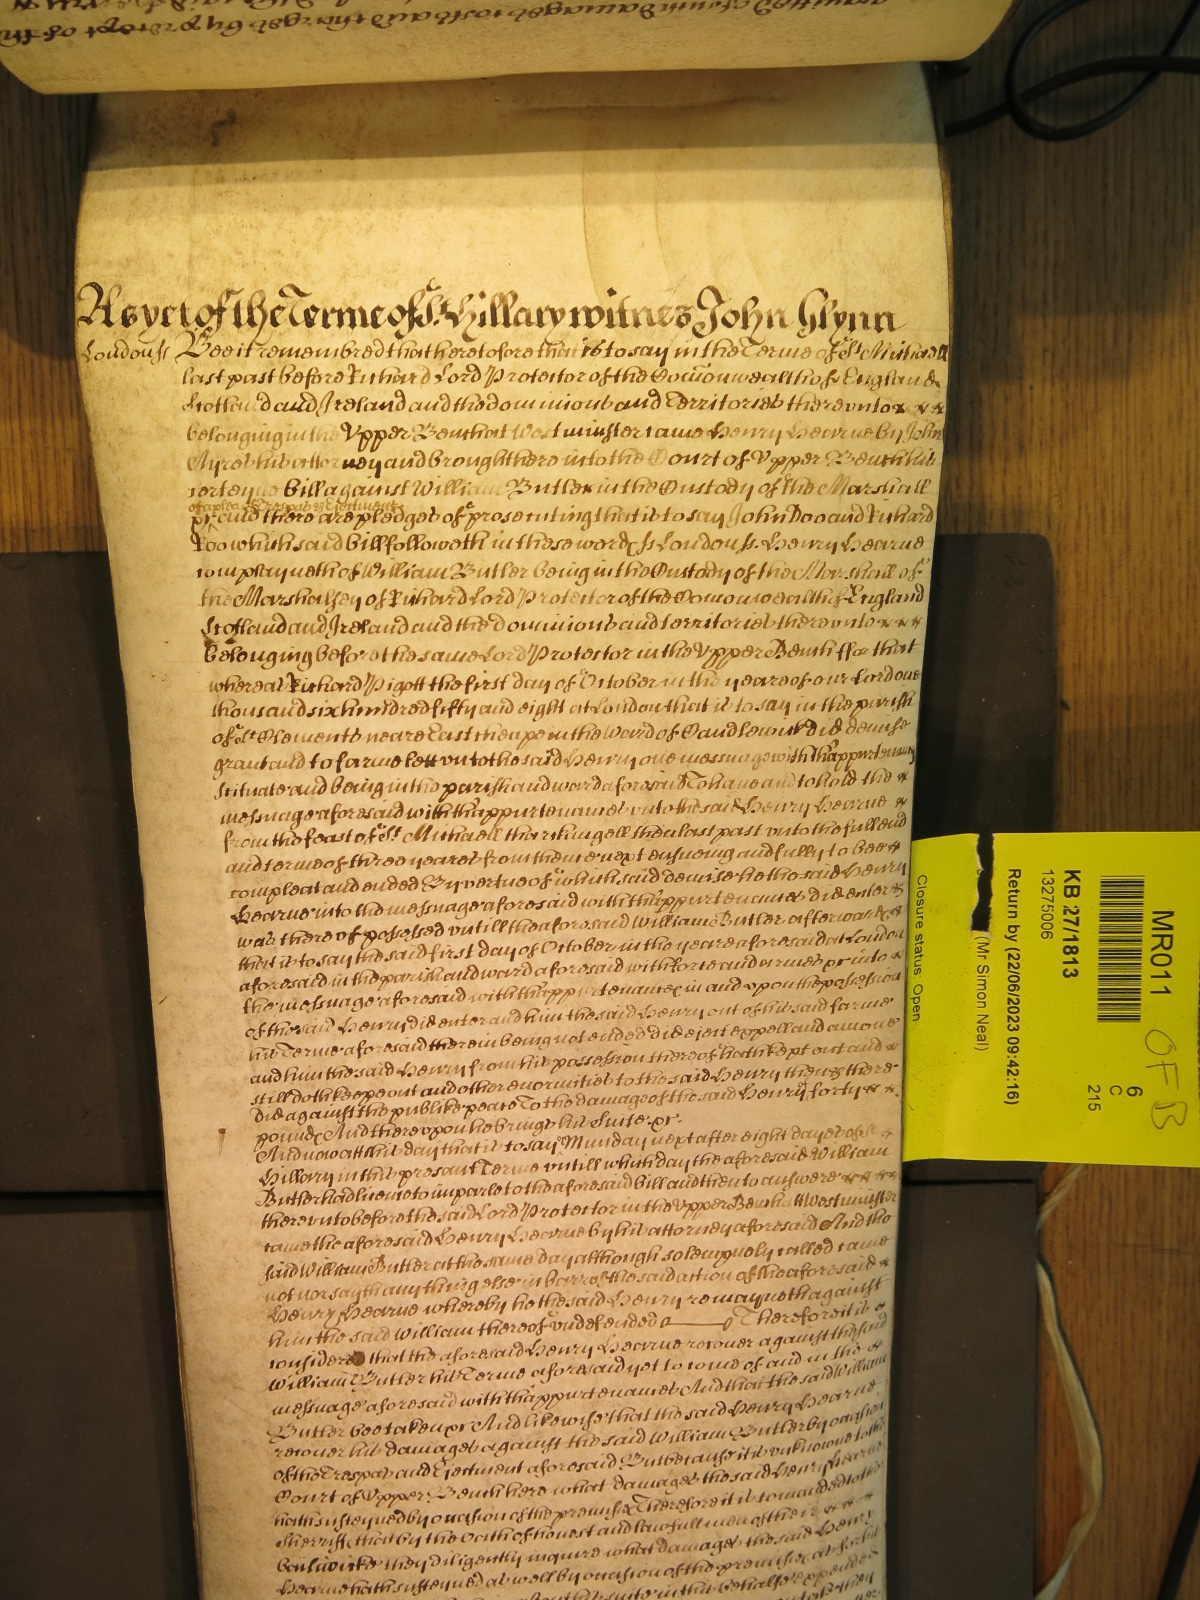 As yet of the Terme of St. Hillary witnes John Glynn
London ss Bee it remembred that heretofore that is to say in the Terme of St. Michaell
last past before Richard Lord Protector of the Comonwealth of England
Scotland and Ireland and the dominions and Territories therevnto
belonging in the Vpper Bench at Westminster came Henry Hearne by John
Ayres his attorney and brought here into the Court of Vpper Bench his
certeyne bill against William Butler in the Custody of the Marshall
of a plea of Trespas & Ejectment
&c and there are pledges of prosecuting that is to say John Doo and Richard
Roo which said bill followeth in these words ss London ss. Henry Hearne
complayneth of William Butler being in the Custody of the Marshall of
the Marshalsey of Richard Lord Protector of the Comonwealth of England
Scotland and Ireland and the dominions and territories therevnto
belonging before the same Lord Protector in the Vpper Bench ffor that
whereas Richard Pigott the first day of October in the yeare of our Lord one
thousand six hundred fifty and eight at London that is to say in the parish
of St Clements neare Eastcheape in the Ward of Candlewick did demise
graunt and to farme lett vnto the said Henry one messuage with thappurtenances
scituate and being in the parish and ward aforesaid To haue and to hold the
messuage aforesaid with thappurtenances vnto the said Henry Hearne
from the feast of St. Michaell tharkangell then last past vnto the full end
and terme of three yeares from thence next ensueing and fully to bee
compleat and ended By vertue of which said demise he the said Henry
Hearne into the messuage aforesaid with thappurtenances did enter &
was thereof possessed vntill the aforesaid William Butler afterwards
that is to say the said first day of October in the yeare aforesaid at London
aforesaid in the parish and ward aforesaid with force and armes &c into
the messuage aforesaid with thappurtenances in and vpon the possession
of the said Henry did enter and him the said Henry out of his said farme
his Terme aforesaid therein being not ended did eject expell and amove
and him the said Henry from his possession thereof hath kept out and
still doth keepe out and other enormities to the said Henry then & there
did against the publike peace To the damage of the said Henry forty
pounds And therevpon he brings his Suite &c.
And now at this day that is to say Munday next after eight dayes of St
Hillary in this present Terme vntill which day the aforesaid William
Butler had lycence to imparle to the aforesaid bill and then to answere
therevnto before the said Lord Protector in the Vpper Bench at Westminster
came the aforesaid Henry Hearne by his attorney aforesaid And the
said William Butler at the same day although solempnely called came
not nor sayth any thing else in barr of the said action of the aforesaid
Henry Hearne whereby he the said Henry remayneth against
him the said William thereof vndefended Therefore it is
considered that the aforesaid Henry Hearne recover against the said
William Butler his Terme aforesaid yet to come of and in the
messuage aforesaid with thappurtenances And that the said William
Butler bee taken &c And likewise that the said Henry Hearne
recover his damages against the said William Butler by occasion
of the Trespas and Ejectment aforesaid But because it is vnknowne to the
Court of Vpper Bench here what damages the said Henry Hearne
hath susteyned by occasion of the premises Therefore it is comanded to the
Sherriffs that by the Oath of honest and lawfull men of their
bailiwicke they diligently inquire what damages the said Henry
Hearne hath susteyned as well by occasion of the premises as for his
MR011
OFB
6
C
215
KB 27/1813
13275006
Return by (22/06/2023 09:42:16)
(Mr Simon Neal)
Closure status: Open